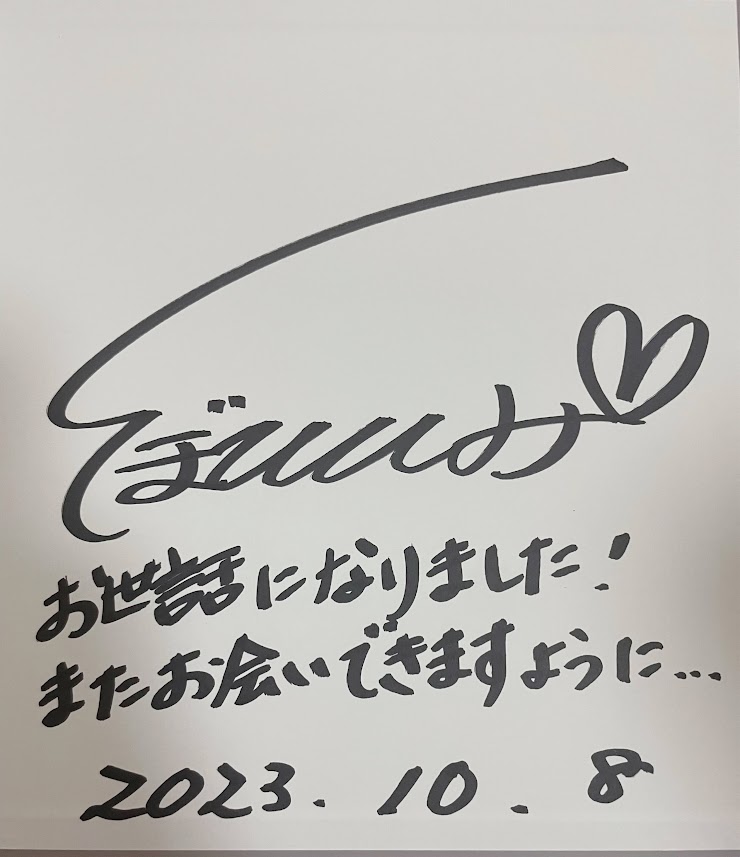 お世話になりました!
またお会いできますように...
2023.10.8